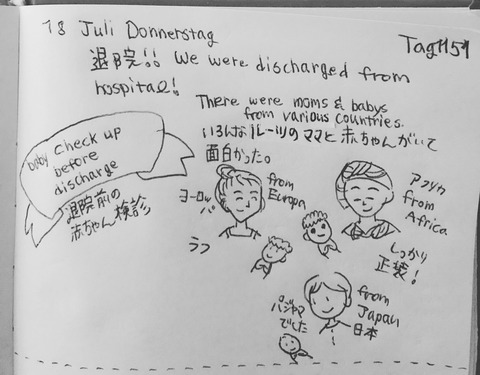 18 Juli Donnerstag
Tag 151
退院!! We were discharged from
hospital!
There were moms & babys
from various countries.
いろんなルーツのママと赤ちゃんがいて
面白かった。
baby check up
before
discharge
退院前の
赤ちゃん検診
ヨーロッ
パ
from
Europa
ラフ
アフリカ
from
Africa
しっかり
正装!
パジャマ
でした
from
Japan
日本